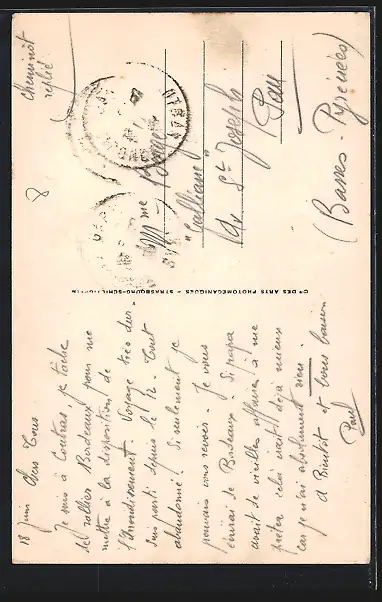 18 juin Chers Tous
Je suis à Coutras, je tâche
de rallier Bordeaux pour me
mettre à la disposition de
l'Arrondissement. Voyage très dur
suis parti depuis le 12. Tout
abandonné! Si seulement je
pouvais vous revoir. Je vous
écrirai de Bordeaux. Si papa
avait de vieilles affaires à me
prêter cela irait déjà mieux
car je n'ai absolument rien.
A Bientôt et bons baisers
Paul
Cie DES ARTS PHOTOMÉCANIQUES - STRASBOURG-SCHILTIGHEIM
Cheminot
replié
8
Mme
"
Av St Joseph
Pau
(Basses-Pyrénées)